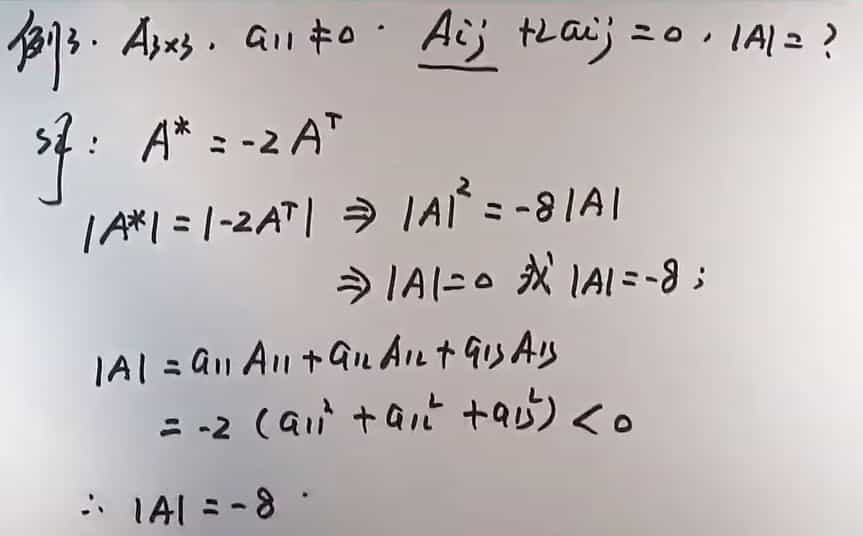 例3. A₃ₓ₃. a₁₁≠0. Aᵢⱼ+2aᵢⱼ=0, |A|=?
解: A*=-2Aᵀ
|A*|=|-2Aᵀ| ⇒ |A|²=-8|A|
⇒ |A|=0 或 |A|=-8;
|A|=a₁₁A₁₁+a₁₂A₁₂+a₁₃A₁₃
=-2(a₁₁²+a₁₂²+a₁₃²)<0
∴ |A|=-8.